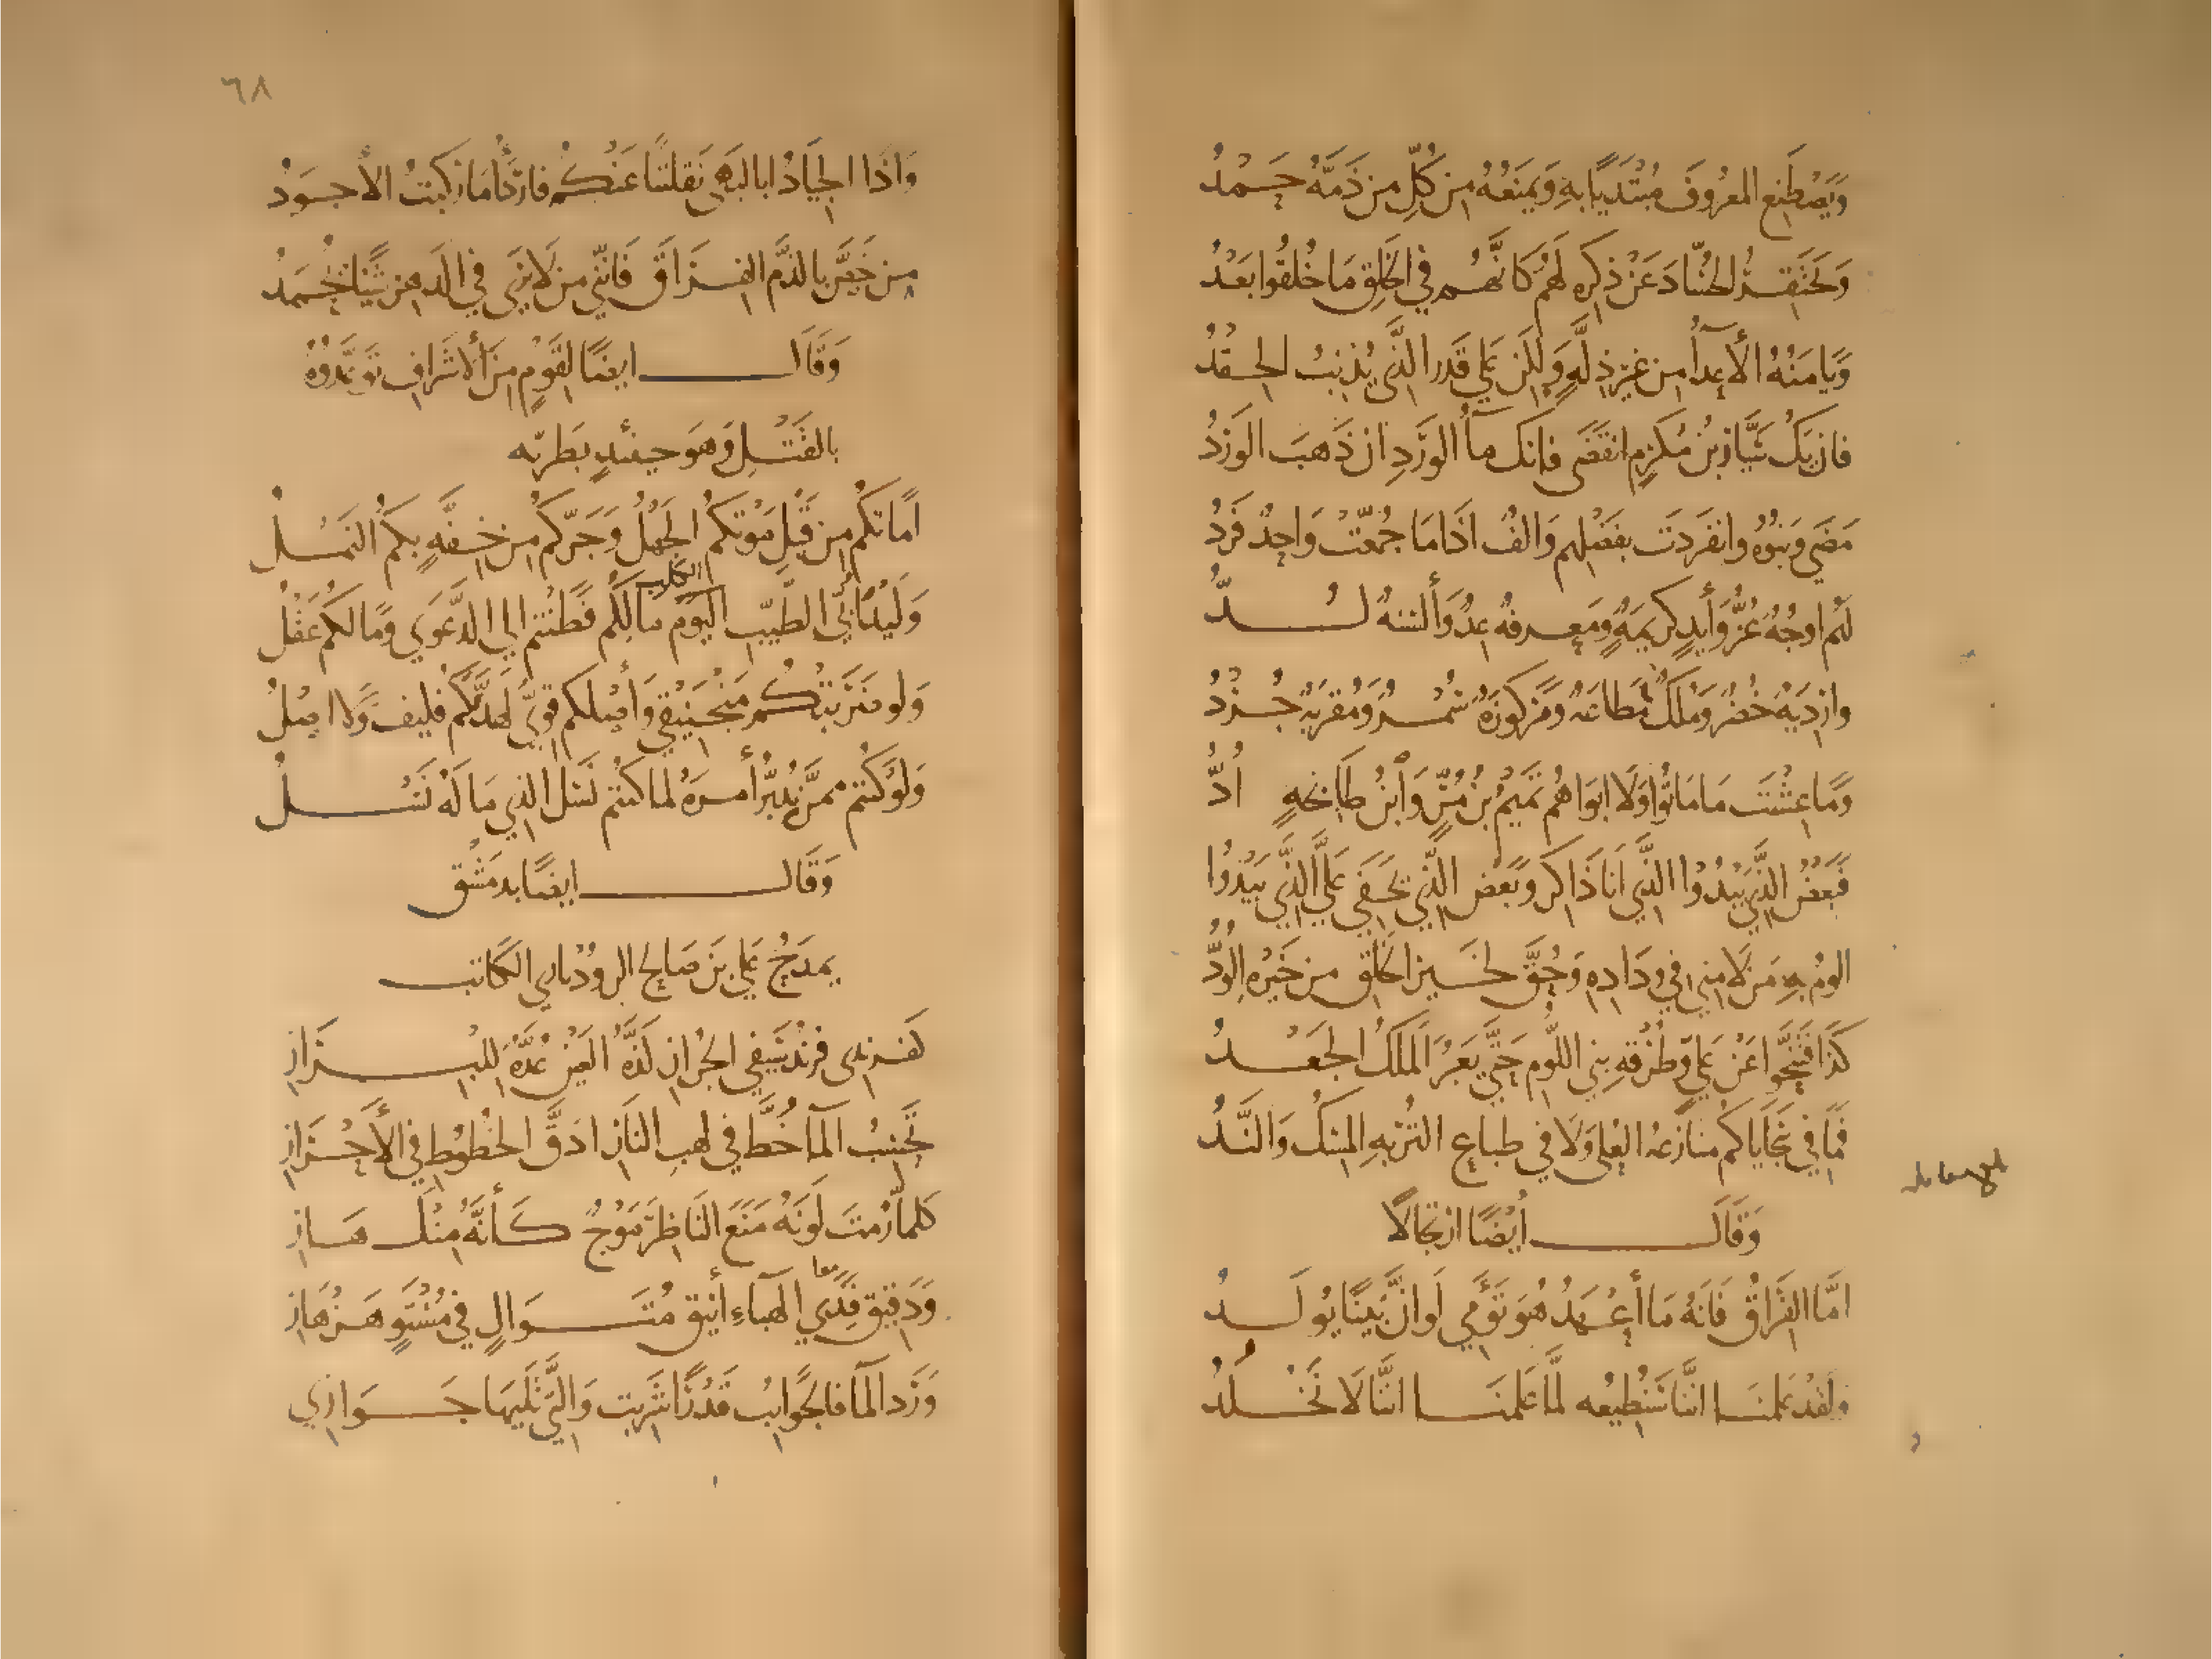 وَيَصْطَنِع المَعْرُوفَ مُبْتَدِيًا بِهِ وَيَمْنَعُهُ مِن كُلِّ مَن ذَمُّهُ حَمْدُ
وَيَحْتَقِرُ الحُسّادَ عَنْ ذِكرِهِ لَهُم كَانَّهُم فِي الخَلقِ مَا خُلِقُوا بَعْدُ
وَيَامَنُهُ الأعدآ مِن غيرِ ذِلَّةٍ وَلكِن عَلى قَدرِ الَّذِي يُذنِبُ الحِقدُ
فان يَكُ سَيَّارُ بنُ مُكرَمٍ انقَضَى فانك مآءُ الوَردِ ان ذَهَبَ الوَردُ
مَضَى وَبَنُوهُ وانفَرَدتَ بِفَضْلِهِم وَالفٌ اذَا مَا جُمِّعَتْ وَاحِدٌ فَردُ
لَهُم اوجُهٌ غُرٌّ وَأَيدٍ كَرِيمَةٌ وَمَعرِفَةٌ عِدٌّ وَأَلسِنَةٌ لُدُّ
واردِيَةٌ خُضْرٌ وَمُلكٌ مُطَاعَةٌ وَمَركُوزَةٌ سُمْرٌ وَمُقرَبَةٌ جُردُ
وَمَا عِشْتَ مَا مَاتُوا وَلَا ابَوَاهُم تَمِيمُ بنُ مُرٍّ وَابْنُ طَابِخَةٍ أُدُّ
فَبَعْضُ الَّذِي يَبْدُوا الَّذِي انَا ذَاكِر وَبَعض الَّذِي يَخفَى عَلَيَّ الَّذِي يَبْدُوا
الومُ بِهِ مَن لَامنِي فِي وِدَادِهِ وَحُقَّ لِخَيرِ الخَلقِ مِن خَيْرِهِ الوُدُّ
كَذَا فَتَنَحَّوا عَنْ عَلِيٍّ وَطُرْقِهِ بَنِي اللُّومِ حَتَّى يَعبُرَ المَلِكُ الجَعْدُ
فَمَا فِي سَجَايَاكُم مُنَازَعَةُ العُلى وَلَا فِي طِبَاعِ التُربَةِ المِسْكُ وَالنَّدُّ
وَقَالَ أيْضًا ارتجَالًا
امَّا الفِرَاقُ فَانّهُ مَا أَعْهَدُ هُوَ تَوْءَمِي لَو انَّ بَيْنًا يُولَدُ
وَلَقَدْ عَلِمْنَا انَّنَا سَنُطِيعُه لَمَّا عَلِمْنَا انَّنَا لَا نَخْلُدُ
٦٨
وَاذَا الجِيَادُ ابا البَهِيِّ نَقَلنَنَا عَنكُم فاردَأُ مَا رَكِبتُ الأجوَدُ
مَن خَصَّ بالذَّمِّ الفِرَاقَ فَانَّنِي مَن لَا يَرَى فِي الدَهر شَيْئًا يُحْمَدُ
وَقَالَ ايضًا لقَوْمٍ مِنَ الأشرَافِ تَوَعَّدُوهُ
بالقَتْلِ وَهوَ حِينَئِدٍ بَطَرِيّه
امَاتَكُم مِن قَبْلِ مَوْتِكُمُ الجَهْلُ وَجَرَّكُمُ مِن خِفَّةٍ بِكُمُ النَمْلُ
وَلَيدَ أُبَيِّ الطَّيِّبِ اليَومَ مَا لَكُم فَطِنتُم إلى الدَّعوَى وَمَا لَكُم عَقْلُ
الكلبِ
وَلو ضَرَبَتْكُم مَنْجَنِيقِي وَأصْلُكُم قوِيٌّ لَهَدَّتكُم فَكِيفَ وَلا اصلُ
وَلَوْ كُنتُم مِمَّن يُدَبِّرُ أَمرَهُ لما كنتُم نَسْل الذِي مَا لَهُ نَسْلُ
وَقَالَ ايضًا بدمَشْق
يمدَحُ عَلي بنَ صَالح الروذبارِي الكَاتب
كَفِرِندِى فِرِندُ سَيفِي الجُرازِ لَذَّةُ العَيْنِ عُدَّةٌ لِلبِرَازِ
تَحسِبُ المآءَ خُطَّ فِي لهبِ النَارِ ادَقَّ الخُطُوطِ فِي الأَحْرَازِ
كلمَا رُمتَ لَونَهُ مَنَعَ النَاظِرَ مَوْجٌ كَأنّهُ مِنْكَ هَازِ
وَدَقيِقٌ قِدَى الهَبآءِ أَنِيقٌ مُتَوَالٍ فِي مُسْتَوٍ هَزْهَازِ
معا
وَرَد المآءَ فالجَوَانِبُ قَدْرًا شَرِبَت وَالَّتِي تَلِيهَا جَوَازِي